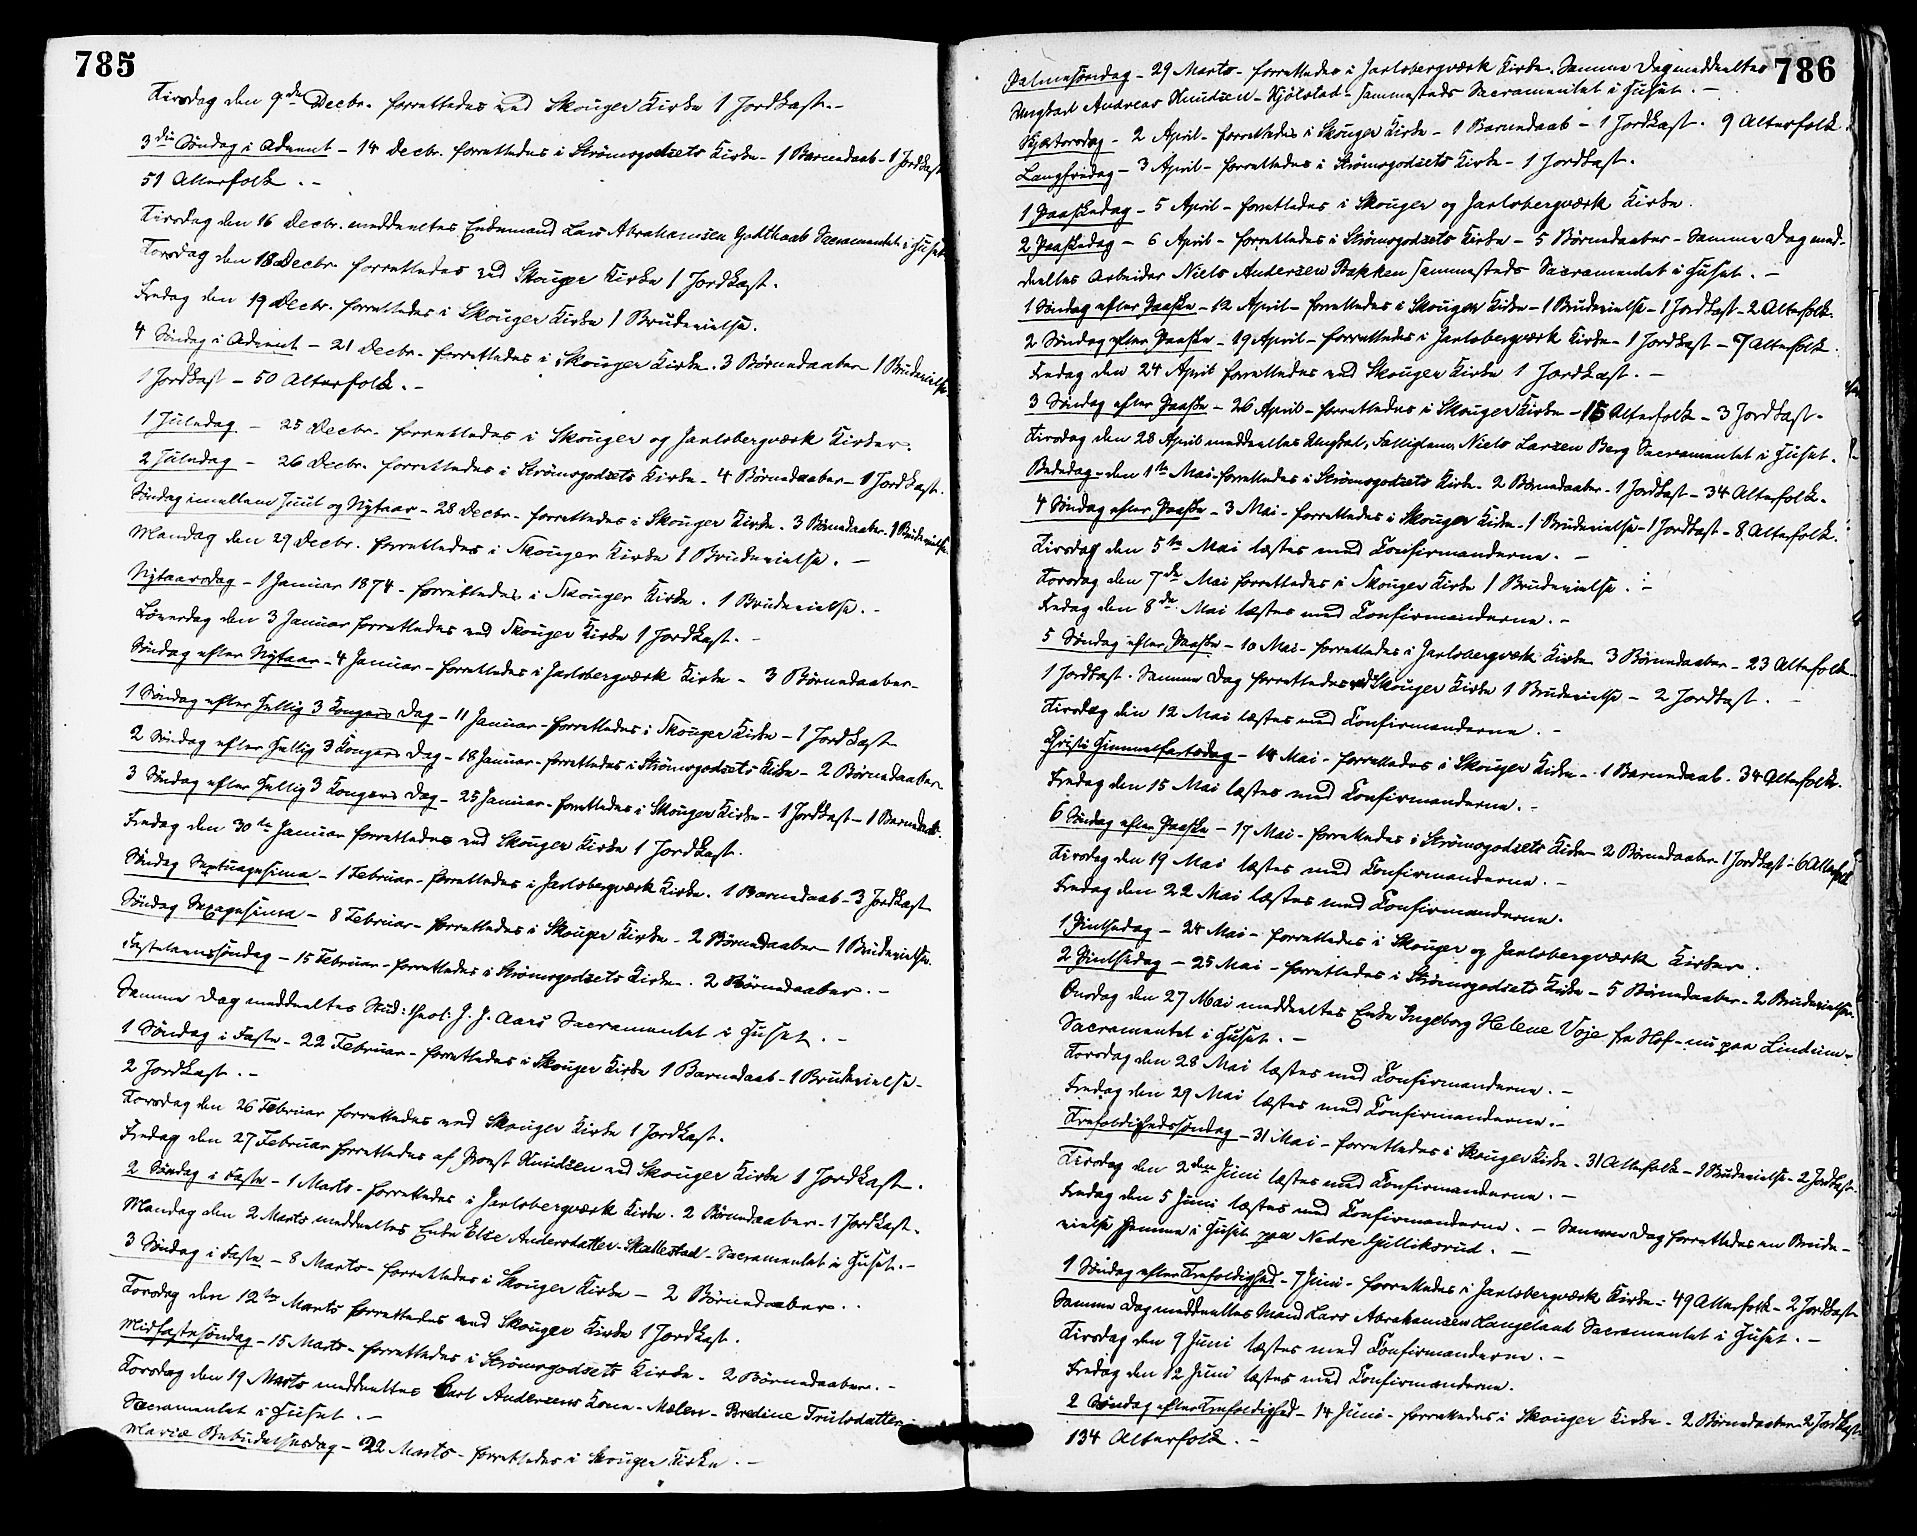 785
Tirsdag den 9de Decbr. forrettedes ved Skouger Kirke 1 Jordkast. -
3die Søndag i Advent - 14 Decbr. forrettedes i Strømsgodsets Kirke - 1 Barnedaab - 1 Jordkast
51 Alterfolk. -
Tirsdag den 16 Decbr. meddeeltes Enkemand Lars Abrahamsen Gothaab Sacramentet i Huset.
Torsdag den 18 Decbr. forrettedes ved Skouger Kirke 1 Jordkast.
Fredag den 19 Decbr. forrettedes i Skouger Kirke 1 Brudevielse.
4 Søndag i Advent - 21 Decbr. forrettedes i Skouger Kirke. 3 Børnedaaber 1 Brudevielse
1 Jordkast - 50 Alterfolk. -
1 Juledag - 25 Decbr. forrettedes i Skouger og Jarlsbergværk Kirker.
2 Juledag - 26 Decbr. forrettedes i Strømsgodsets Kirke - 4 Børnedaaber - 1 Jordkast.
Søndag imellem Juul og Nytaar - 28 Decbr. forrettedes i Skouger Kirke. 3 Børnedaaber. 1 Brudevielse.
Mandag den 29 Decbr. forrettedes i Skouger Kirke 1 Brudevielse. -
Nytaarsdag - 1 Januar 1874 - forrettedes i Skouger Kirke. 1 Brudevielse. -
Løverdag den 3 Januar forrettedes ved Skouger Kirke 1 Jordkast. -
Søndag efter Nytaar - 4 Januar - forrettedes i Jarlsbergværk Kirke - 3 Børnedaaber -
1 Søndag efter Hellig 3 Kongers Dag - 11 Januar - forrettedes i Skouger Kirke - 1 Jordkast
2 Søndag efter Hellig 3 Kongers Dag - 18 Januar - forrettedes i Strømsgodsets Kirke - 2 Børnedaaber
3 Søndag efter Hellig 3 Kongers Dag - 25 Januar - forrettedes i Skouger Kirke - 1 Jordkast - 1 Barnedaab.
Fredag den 30te Januar forrettedes ved Skouger Kirke 1 Jordkast.
Søndag Septuagesima - 1 Februar - forrettedes i Jarlsbergværk Kirke. 1 Barnedaab - 3 Jordkast
Søndag Sexagesima - 8 Februar - forrettedes i Skouger Kirke - 2 Børnedaaber - 1 Brudevielse.
Fastelavnssøndag - 15 Februar - forrettedes i Strømsgodsets Kirke. 2 Børnedaaber. -
Samme Dag meddeeltes Stud: theol: J. J. Aars Sacramentet i Huset. -
1 Søndag i Faste - 22 Februar - forrettedes i Skouger Kirke 1 Barnedaab - 1 Brudevielse -
2 Jordkast. -
Torsdag den 26 Februar forrettedes ved Skouger Kirke 1 Jordkast.
Fredag den 27 Februar forrettedes af Provst Knudsen ved Skouger Kirke 1 Jordkast.
2 Søndag i Faste - 1 Marts - forrettedes i Jarlsbergværk Kirke. 2 Børnedaaber - 1 Jordkast.
Mandag den 2 Marts meddeeltes Enke Else Andersdatter - Skallestad - Sacramentet i Huset. -
3 Søndag i Faste - 8 Marts - forrettedes i Skouger Kirke - 2 Børnedaaber. .
Torsdag den 12te Marts forrettedes ved Skouger Kirke 1 Jordkast.
Midfastesøndag - 15 Marts - forrettedes i Strømsgodsets Kirke - 2 Børnedaaber. -
Torsdag den 19 Marts meddeeltes Carl Andersens Kone - Mælen - Bredine Trulsdatter
Sacramentet i Huset. -
Mariæ Bebudelsesdag - 22 Marts - forrettedes i Skouger Kirke. -
786
Palmesøndag - 29 Marts - forrettedes i Jarlsbergværk Kirke. Samme Dag meddeeltes
Ungkarl Andreas Knudsen - Kjølstad - sammesteds Sacramentet i Huset. -
Skjærtorsdag - 2 April - forrettedes i Skouger Kirke - 1 Barnedaab - 1 Jordkast. 9 Alterfolk
Langfredag - 3 April - forrettedes i Strømsgodsets Kirke - 1 Jordkast.
1 Paaskedag - 5 April - forrettedes i Skouger og Jarlsbergværk Kirke.
2 Paaskedag - 6 April - forrettedes i Strømsgodsets Kirke - 5 Børnedaaber - Samme Dag med-
deeltes Arbeider Niels Andersen Bakken sammesteds Sacramentet i Huset. -
1 Søndag efter Paaske - 12 April - forrettedes i Skouger Kirke - 1 Brudevielse - 1 Jordkast - 2 Alterfolk.
2 Søndag efter Paaske - 19 April - forrettedes i Jarlsbergværk Kirke - 1 Jordkast - 7 Alterfolk.
Fredag den 24 April forrettedes ved Skouger Kirke 1 Jordkast. -
3 Søndag efter Paaske - 26 April - forrettedes i Skouger Kirke - 15 Alterfolk - 3 Jordkast -
Tirsdag den 28 April meddeeltes Ungkarl, Fattiglem, Niels Larsen Berg Sacramentet i Huset.
Bededag - den 1te Mai - forrettedes i Strømsgodsets Kirke - 2 Børnedaaber - 1 Jordkast - 34 Alterfolk -
4 Søndag efter Paaske - 3 Mai - forrettedes i Skouger Kirke - 1 Brudevielse - 1 Jordkast - 8 Alterfolk.
Tirsdag den 5te Mai læstes med Confirmanderne. -
Torsdag den 7de Mai forrettedes i Skouger Kirke 1 Brudevielse. -
Fredag den 8de Mai læstes med Confirmanderne. -
5 Søndag efter Paaske - 10 Mai - forrettedes i Jarlsbergværk Kirke 3 Børnedaaber - 23 Alterfolk -
1 Jordkast. Samme Dag forrettedes ved Skouger Kirke 1 Brudevielse - 2 Jordkast. -
Tirsdag den 12 Mai læstes med Confirmanderne. -
Christi Himmelfartsdag - 14 Mai - forrettedes i Skouger Kirke - 1 Barnedaab. 34 Alterfolk.
Fredag den 15 Mai læstes med Confirmanderne. -
6 Søndag efter Paaske - 17 Mai - forrettedes i Strømsgodsets Kirke 2 Børnedaaber - 1 Jordkast - 6 Alterfolk
Tirsdag den 19 Mai læstes med Confirmanderne. -
Fredag den 22 Mai læstes med Confirmanderne.
1 Pintsedag - 24 Mai - forrettedes i Skouger og Jarlsbergværk Kirker.
2 Pintsedag - 25 Mai - forrettedes i Strømsgodsets Kirke - 5 Børnedaaber - 2 Brudevielser.
Onsdag den 27 Mai meddeeltes Enke Ingeborg Helene Voje fra Hof - nu paa Lindum -
Sacramentet i Huset. -
Torsdag den 28 Mai læstes med Confirmanderne. -
Fredag den 29 Mai læstes med Confirmanderne. -
Trefoldighedssøndag - 31 Mai - forrettedes i Skouger Kirke - 31 Alterfolk - 1 Brudevielse - 2 Jordkast.
Tirsdag den 2den Juni læstes med Confirmanderne. -
Fredag den 5 Juni læstes med Confirmanderne. - Samme Dag forrettedes en Brude-
vielse hjemme i Huset paa Nedre Gulliksrud. -
1 Søndag efter Trefoldighed - 7 Juni - forrettedes i Jarlsbergværk Kirke - 49 Alterfolk - 2 Jordkast
Samme Dag meddeeltes Mand Lars Abrahamsen Langeland Sacramentet i Huset. -
Tirsdag den 9 Juni læstes med Confirmanderne. -
Fredag den 12 Juni læstes med Confirmanderne.
2 Søndag efter Trefoldighed - 14 Juni - forrettedes i Skouger Kirke - 2 Børnedaaber - 2 Jordkast
134 Alterfolk. -